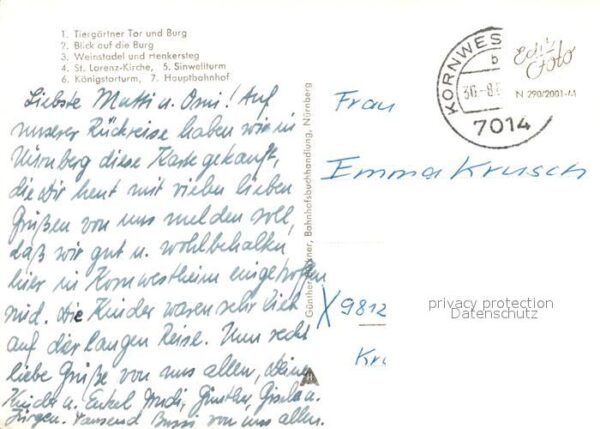 1. Tiergärtner Tor und Burg
2. Blick auf die Burg
3. Weinstadel und Henkersteg
4. St. Lorenz-Kirche, 5. Sinwellturm
6. Königstorturm, 7. Hauptbahnhof
Liebste Mutti u. Omi! Auf
unserer Rückreise haben wir in
Nürnberg diese Karte gekauft,
die Dir heut mit vielen lieben
Grüßen von uns melden soll,
daß wir gut u. wohlbehalten
hier in Kornwestheim eingetroffen
sind. Die Kinder waren sehr lieb
auf der langen Reise. Nun recht
liebe Grüße von uns allen, Deine
Kinder u. Enkel Günther, Gisela u.
Jürgen. Tausend Bussi von uns allen.
Bahnhofsbuchhandlung, Nürnberg
KORNWES
b
7014
N 290/2001-M
Frau
Emma Krusch
X 9812
Kru
privacy protection
Datenschutz